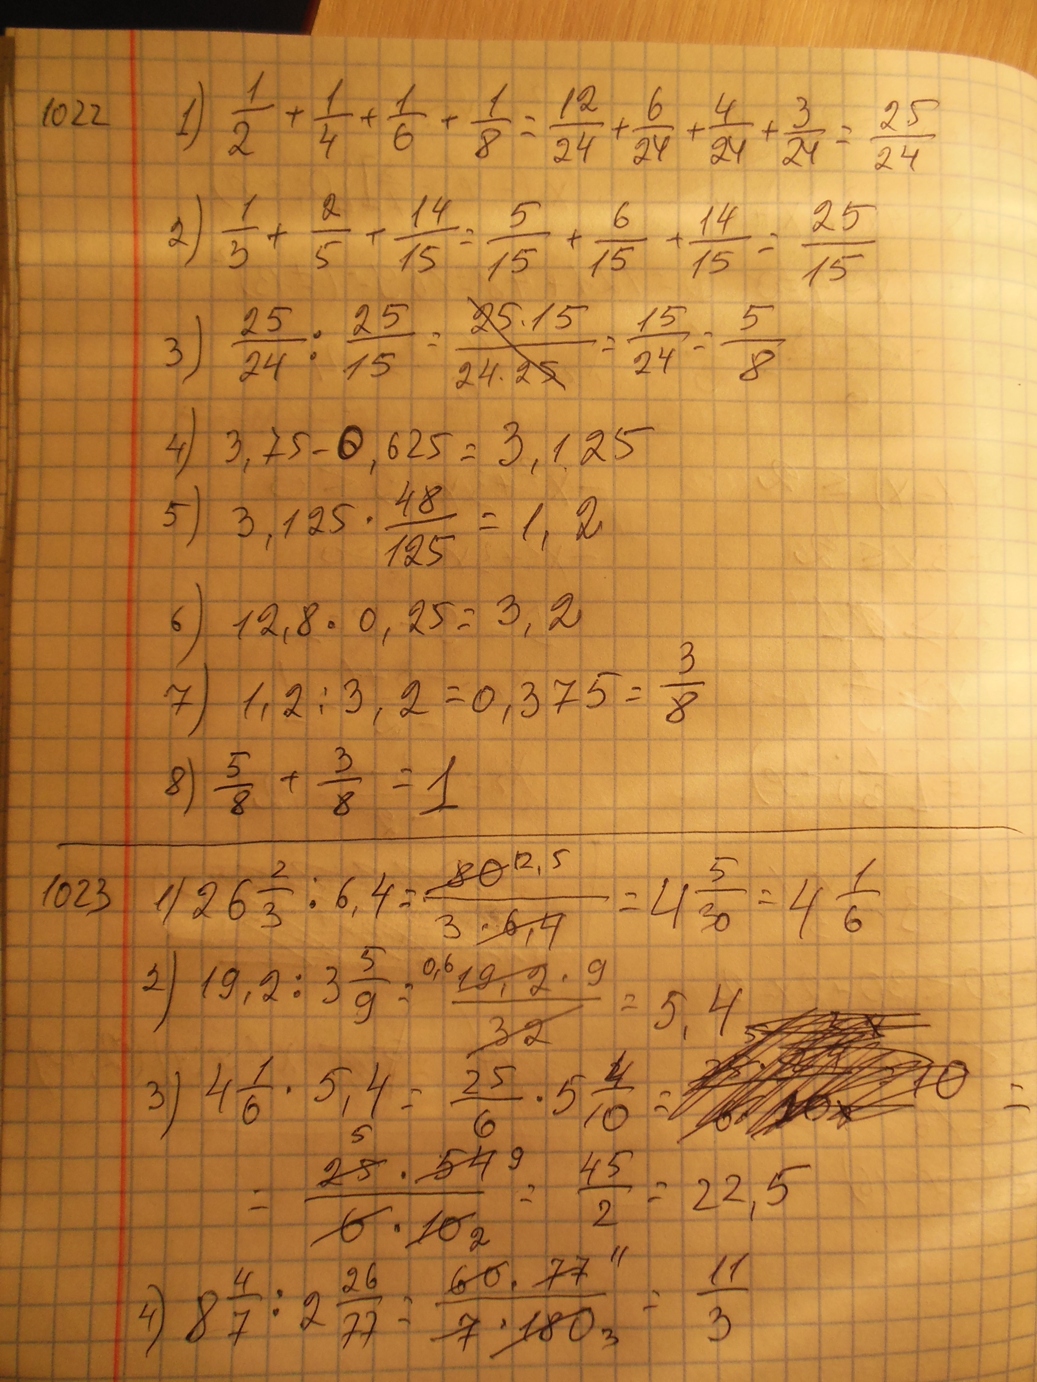 1022 1) 1/2 + 1/4 + 1/6 + 1/8 = 12/24 + 6/24 + 4/24 + 3/24 = 25/24
2) 1/3 + 2/5 + 14/15 = 5/15 + 6/15 + 14/15 = 25/15
3) 25/24 : 25/15 = 25·15/24·25 = 15/24 = 5/8
4) 3,75 - 0,625 = 3,125
5) 3,125 · 48/125 = 1,2
6) 12,8 · 0,25 = 3,2
7) 1,2 : 3,2 = 0,375 = 3/8
8) 5/8 + 3/8 = 1
1023 1) 26 2/3 : 6,4 = 80 12,5/3 · 6,4 = 4 5/30 = 4 1/6
2) 19,2 : 3 5/9 = 0,6 19,2 · 9/32 = 5,4
3) 4 1/6 · 5,4 = 25/6 · 5 4/10 = 10 =
= 5 25 · 54 9/6 · 10 2 = 45/2 = 22,5
4) 8 4/7 : 2 26/77 = 60 · 77 11/7 · 180 3 = 11/3